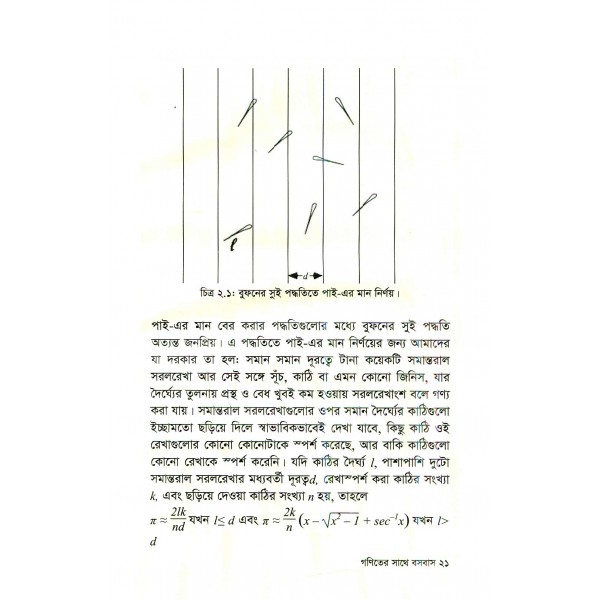 l
d
চিত্র ২.১: বুফনের সুই পদ্ধতিতে পাই-এর মান নির্ণয়।
পাই-এর মান বের করার পদ্ধতিগুলোর মধ্যে বুফনের সুই পদ্ধতি
অত্যন্ত জনপ্রিয়। এ পদ্ধতিতে পাই-এর মান নির্ণয়ের জন্য আমাদের
যা দরকার তা হল: সমান সমান দূরত্বে টানা কয়েকটি সমান্তরাল
সরলরেখা আর সেই সঙ্গে সূঁচ, কাঠি বা এমন কোনো জিনিস, যার
দৈর্ঘ্যের তুলনায় প্রস্থ ও বেধ খুবই কম হওয়ায় সরলরেখাংশ বলে গণ্য
করা যায়। সমান্তরাল সরলরেখাগুলোর ওপর সমান দৈর্ঘ্যের কাঠিগুলো
ইচ্ছামতো ছড়িয়ে দিলে স্বাভাবিকভাবেই দেখা যাবে, কিছু কাঠি ওই
রেখাগুলোর কোনো কোনোটাকে স্পর্শ করেছে, আর বাকি কাঠিগুলো
কোনো রেখাকে স্পর্শ করেনি। যদি কাঠির দৈর্ঘ্য l, পাশাপাশি দুটো
সমান্তরাল সরলরেখার মধ্যবর্তী দূরত্বd, রেখাস্পর্শ করা কাঠির সংখ্যা
k, এবং ছড়িয়ে দেওয়া কাঠির সংখ্যা n হয়, তাহলে
π ≈ 2lk/nd যখন l≤ d এবং π ≈ 2k/n (x – √x² – 1 + sec⁻¹x) যখন l>
d
গণিতের সাথে বসবাস ২১